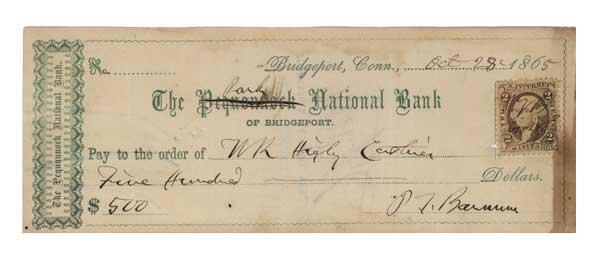 The Pequonnock National Bank.
No.
Bridgeport, Conn., Oct 28 1865
Park
The Pequonnock National Bank
OF BRIDGEPORT.
Pay to the order of W R Higby Cashier
Five Hundred Dollars.
$ 500
P. T. Barnum
U.S. INTER. REV.
2 2
2 2